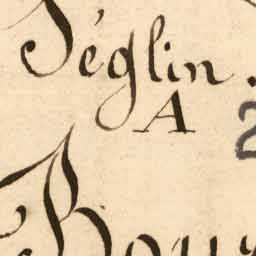 Séglin.
A 2
Bou